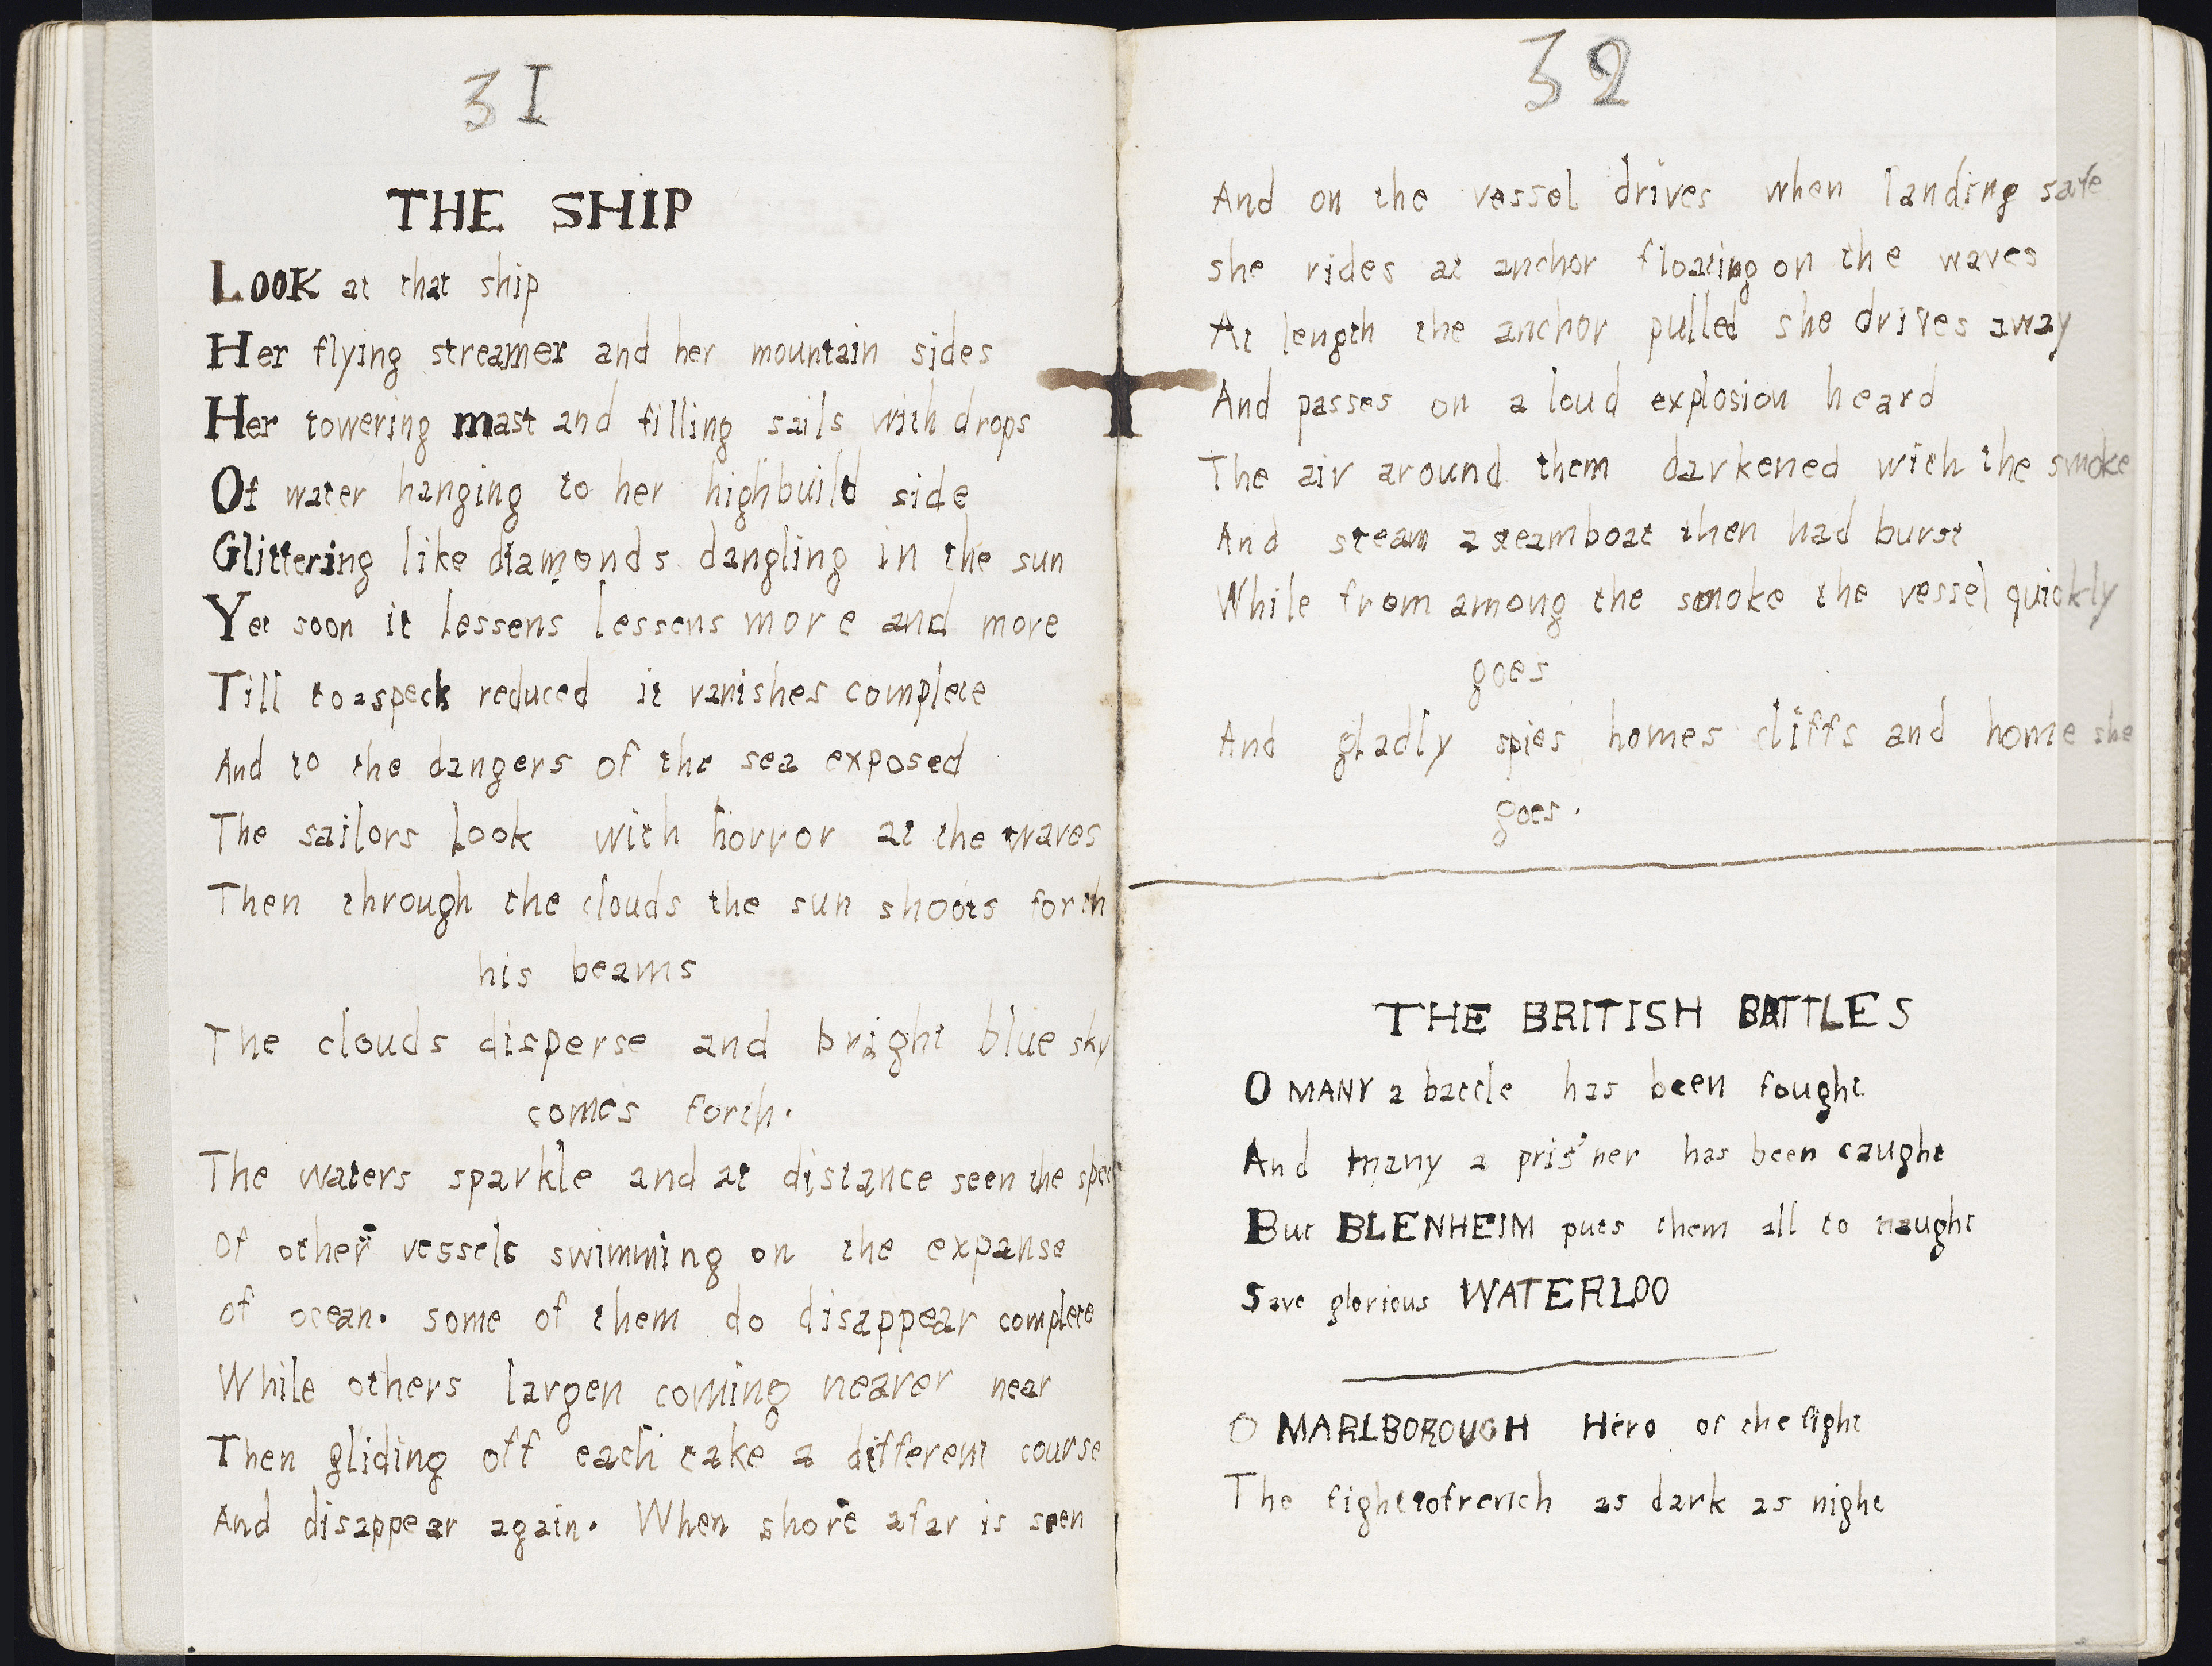 31
THE SHIP
LOOK at that ship
Her flying streamer and her mountain sides
Her towering mast and filling sails with drops
Of water hanging to her highbuild side
Glittering like diamonds dangling in the sun
Yet soon it lessens lessens more and more
Till to a speck reduced it vanishes complete
And to the dangers of the sea exposed
The sailors look with horror at the waves
Then through the clouds the sun shoots forth
his beams
The clouds disperse and bright blue sky
comes forth.
The waters sparkle and at distance seen the
Of other vessels swimming on the expanse
of ocean. some of them do disappear complete
While others largen coming nearer near
Then gliding off each take a different course
And disappear again. When shore afar is seen
32
And on the vessel drives when landing safe
she rides at anchor floating on the waves
At length the anchor pulled she drives away
And passes on a loud explosion heard
The air around them darkened with the smoke
And steam a steamboat then had burst
While from among the smoke the vessel quickly
goes
And gladly spies homes cliffs and home she
goes.
THE BRITISH BATTLES
O MANY a battle has been fought
And many a pris'ner has been caught
But BLENHEIM puts them all to naught
Save glorious WATERLOO
O MARLBOROUGH Hero of the fight
The fight of french as dark as night